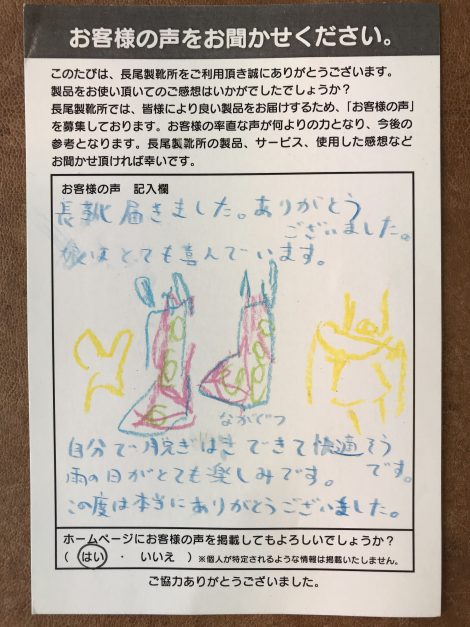 お客様の声をお聞かせください。
このたびは、長尾製靴所をご利用頂き誠にありがとうございます。
製品をお使い頂いてのご感想はいかがでしたでしょうか?
長尾製靴所では、皆様により良い製品をお届けするため、「お客様の声」
を募集しております。お客様の率直な声が何よりの力となり、今後の
参考となります。長尾製靴所の製品、サービス、使用した感想など
お聞かせ頂ければ幸いです。
お客様の声 記入欄
長靴届きました。ありがとう
ございました。
娘はとても喜んでいます。
ながぐつ
自分で脱ぎはきできて快適そう
です。
雨の日がとても楽しみです。
この度は本当にありがとうございました。
ホームページにお客様の声を掲載してもよろしいでしょうか?
( はい ・ いいえ ) ※個人が特定されるような情報は掲載いたしません。
ご協力ありがとうございました。